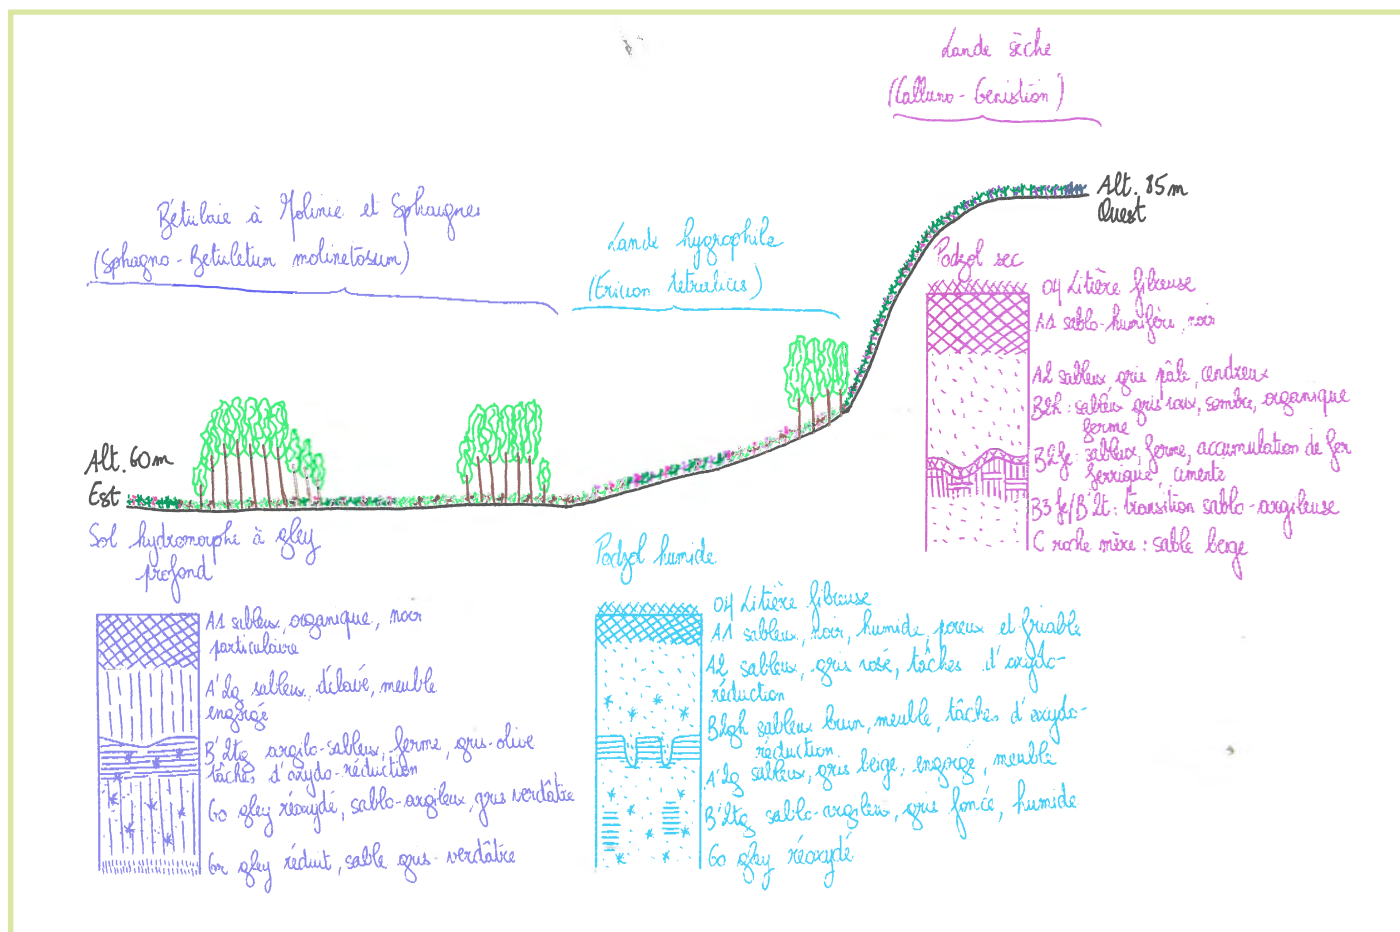 Lande sèche
(Calluno-Genistion)
Alt. 85m
Ouest
Bétulaie à Molinie et Sphaignes
(Sphagno-Betuletum molinetosum)
Lande hygrophile
(Ericion tetralicis)
Podzol sec
04 Litière fibreuse
A1 sablo-humifère, noir
A2 sableux, gris pâle, cendreux
B2h : sableux gris roux, sombre, organique
ferme
B2fe : sableux, ferme, accumulation de fer
ferrique, cimenté
B3fe/B'2t : transition sablo-argileuse
C roche mère : sable beige
Alt. 60m
Est
Sol hydromorphe à gley
profond
A1 sableux, organique, noir
particulaire
A'2g sableux, délavé, meuble
engorgé
B'2tg argilo-sableux, ferme, gris-olive
tâches d'oxydo-réduction
Go gley réoxydé, sablo-argileux, gris verdâtre
Gr gley réduit, sable gris-verdâtre
Podzol humide
04 Litière fibreuse
A1 sableux, noir, humide, poreux et friable
A2 sableux, gris rosé, tâches d'oxydo-
réduction
B2gh sableux brun, meuble, tâches d'oxydo-
réduction
A'2g sableux, gris beige, engorgé, meuble
B'2tg sablo-argileux, gris foncé, humide
Go gley réoxydé